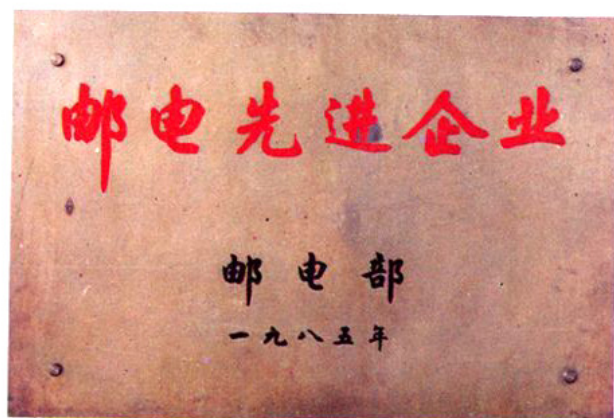 邮电先进企业
邮电部
一九八五年